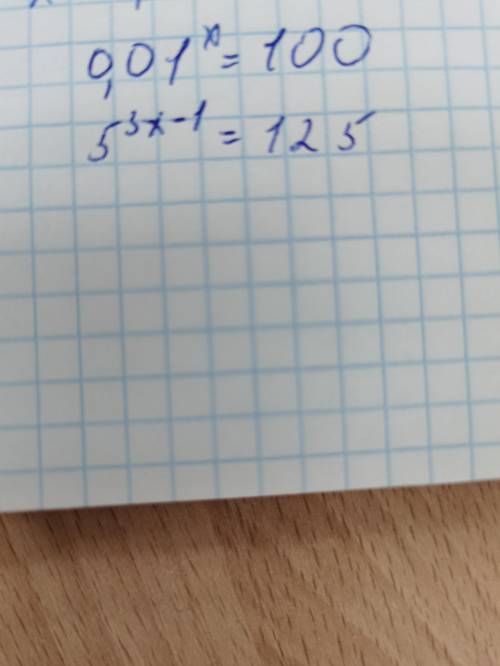 0,01ˣ = 100
5³ˣ⁻¹ = 125